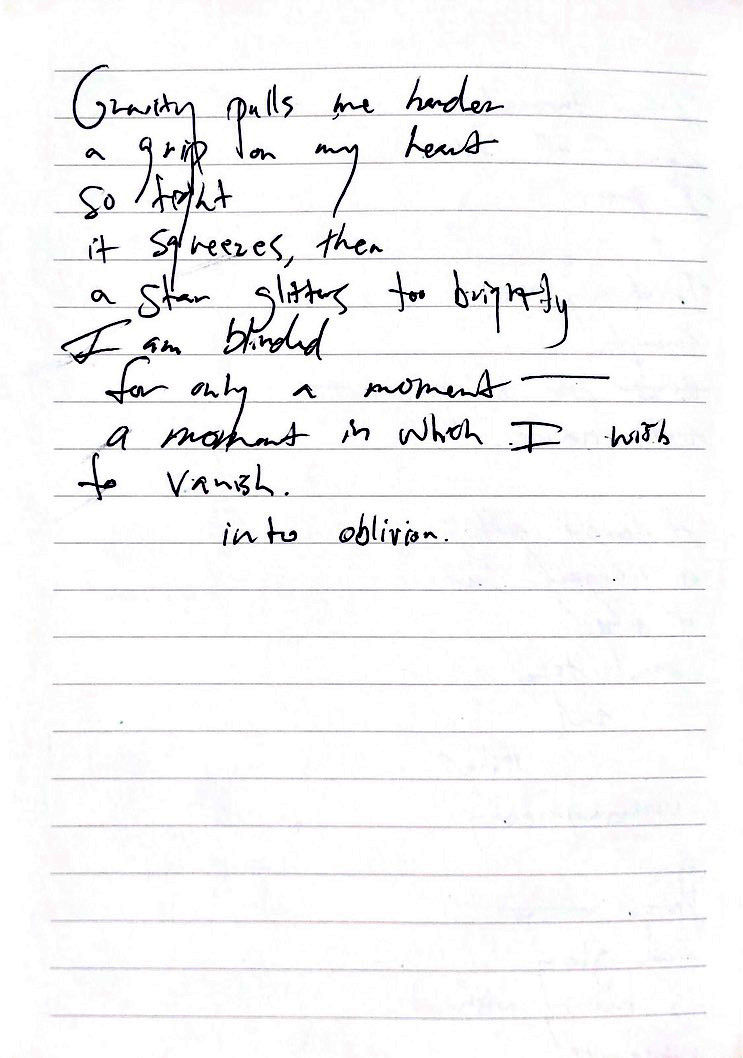 Gravity pulls me harder
a grip on my heart
so tight
it squeezes, then
a star glitters too brightly
I am blinded
for only a moment —
a moment in which I wish
to vanish.
into oblivion.